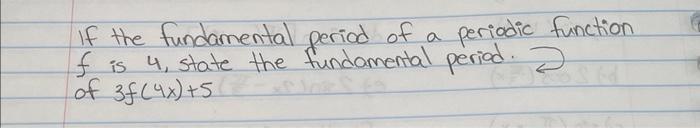 If the fundamental period of a periodic function
f is 4, state the fundamental period.
of 3f(4x)+5